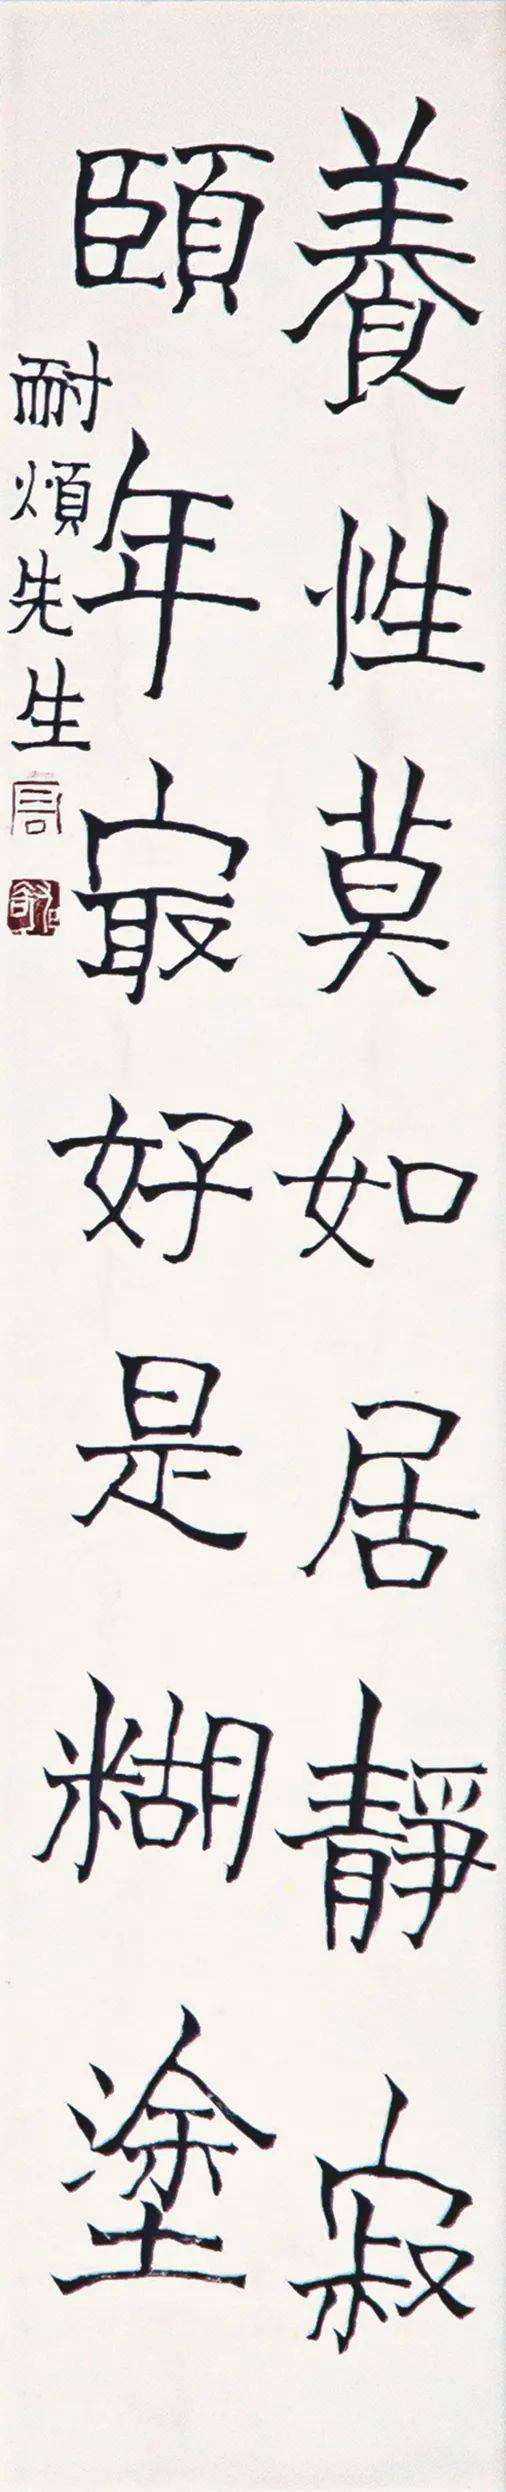 養性莫如居靜寂
頤年最好是糊塗
耐煩先生